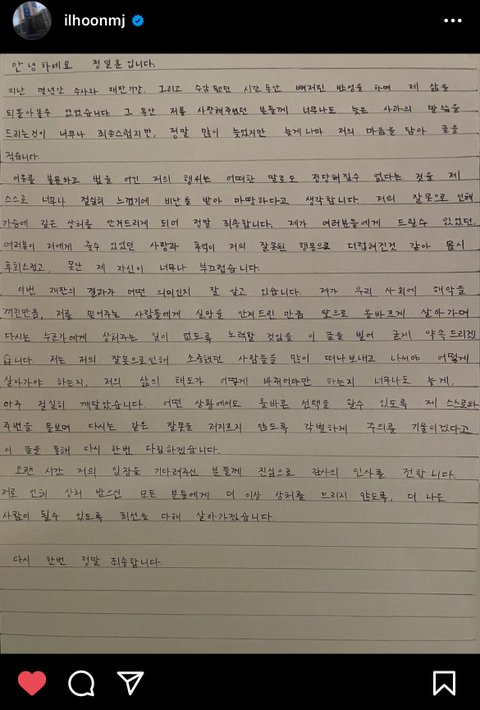 ilhoonmj
안녕하세요 정일훈입니다.
지난 몇년간 수사와 재판기간, 그리고 수감됐던 시간동안 뼈저린 반성을 하며 제 삶을
되돌아볼수 있었습니다 그 동안 저를 사랑해주셨던 분들께 너무나도 늦은 사과의 말씀을
드리는것이 너무나 죄송스럽지만, 정말 많이 늦었지만 늦게나마 저의 마음을 담아 글을
적습니다
이유를 불문하고 법을 어긴 저의 행위는 어떠한 말로도 정당해질수 없다는 것을 제
스스로 너무나 절실히 느꼈기에 비난을 받아 마땅하다고 생각합니다 저의 잘못으로 인해
가슴에 깊은 상처를 안겨드리게 되어 정말 죄송합니다. 제가 여러분들에게 드릴수 있었던,
여러분이 저에게 줄수 있었던 사랑과 추억이 저의 잘못된 행동으로 더럽혀진것 같아 몹시
후회스럽고, 못난 제 자신이 너무나 부끄럽습니다.
이번 재판의 결과가 어떤 의미인지 잘 알고 있습니다. 제가 우리 사회에 해악을
끼친만큼, 저를 믿어주는 사람들에게 실망을 안겨드린 만큼 앞으로 올바르게 살아가며
다시는 누군가에게 상처주는 일이 없도록 노력할 것임을 이 글을 빌어 굳게 약속드리겠
습니다 저는 저의 잘못으로인해 소중했던 사람들을 많이 떠나보내고 나서야 어떻게
살아가야 하는지, 저의 삶의 태도가 어떻게 바뀌어야만 하는지 너무나도 늦게,
아주 절실히 깨달았습니다. 어떤 상황에서도 올바른 선택을 할수 있도록 제 스스로와
주변을 돌보며 다시는 같은 잘못을 저지르지 않도록 각별하게 주의를 기울이겠다고
이 글을 통해 다시 한번 다짐하겠습니다.
오랜 시간 저의 입장을 기다려주신 분들께 진심으로 감사의 인사를 전합니다.
저로 인해 상처 받으신 모든 분들에게 더 이상 상처를 드리지 않도록, 더 나은
사람이 될수 있도록 최선을 다해 살아가겠습니다
다시 한번 정말 죄송합니다